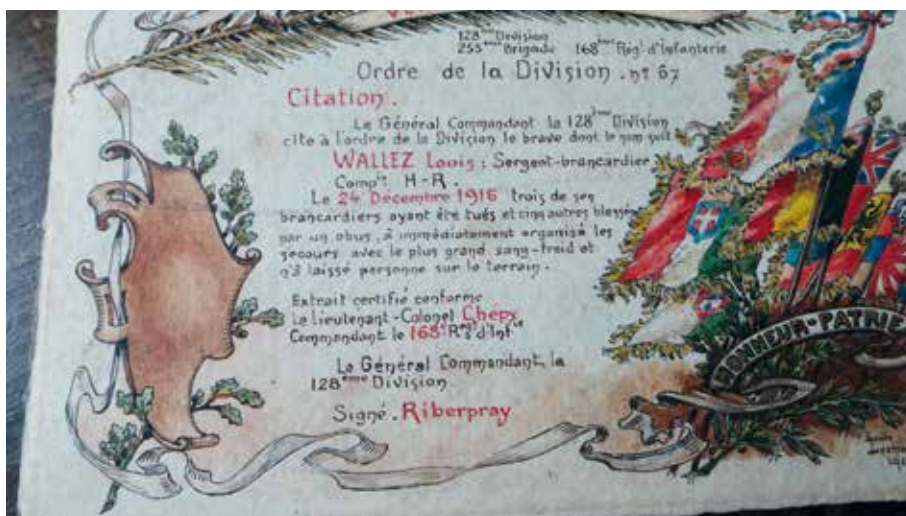 128ème Division
255ème Brigade 168ème Rég. d'Infanterie
Ordre de la Division . n° 67
Citation .
Le Général Commandant la 128ème Division
cite à l'ordre de la Division le brave dont le nom suit
WALLEZ Louis : Sergent-brancardier
H-R .
Le 24 Décembre 1916 trois de ses
brancardiers ayant été tués et cinq autres blessés
par un obus, à immédiatement organisé les
secours avec le plus grand sang-froid et
n'a laissé personne sur le terrain .
Extrait certifié conforme
Le Lieutenant-Colonel
Commandant le 168e Rg d'Infie
Le Général Commandant la
128ème Division
Signé . Riberpray
HONNEUR-PATRIE